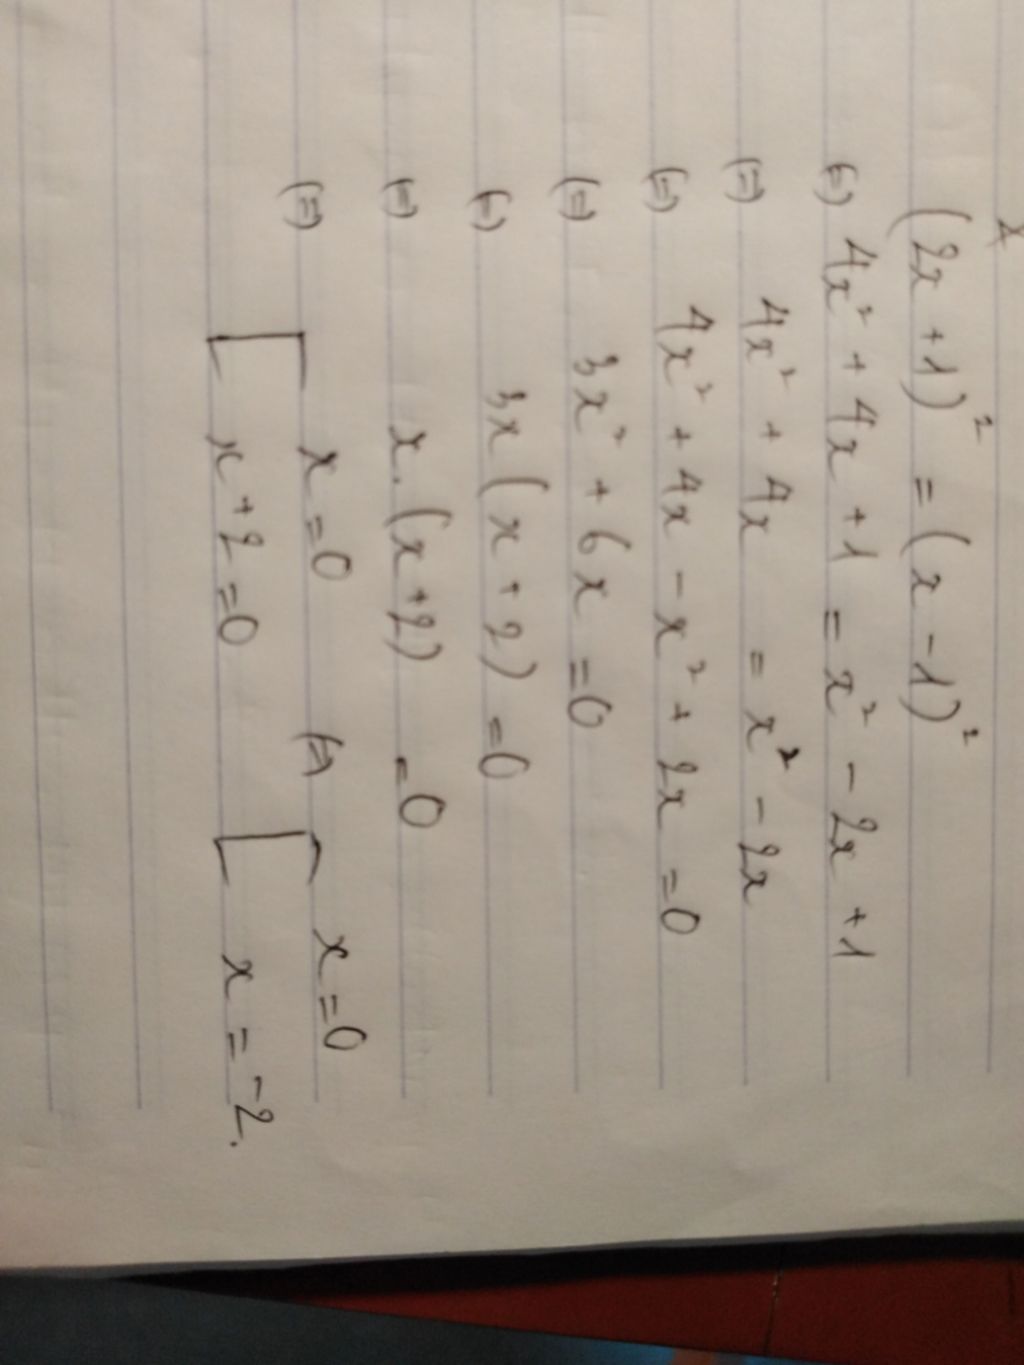 (2x + 1)² = (x - 1)²
(=) 4x² + 4x + 1 = x² - 2x + 1
(=) 4x² + 4x = x² - 2x
(=) 4x² + 4x - x² + 2x = 0
(=) 3x² + 6x = 0
(=) 3x (x + 2) = 0
(=) x. (x + 2) = 0
(=) [ x = 0 (=) [ x = 0
x + 2 = 0 x = -2.